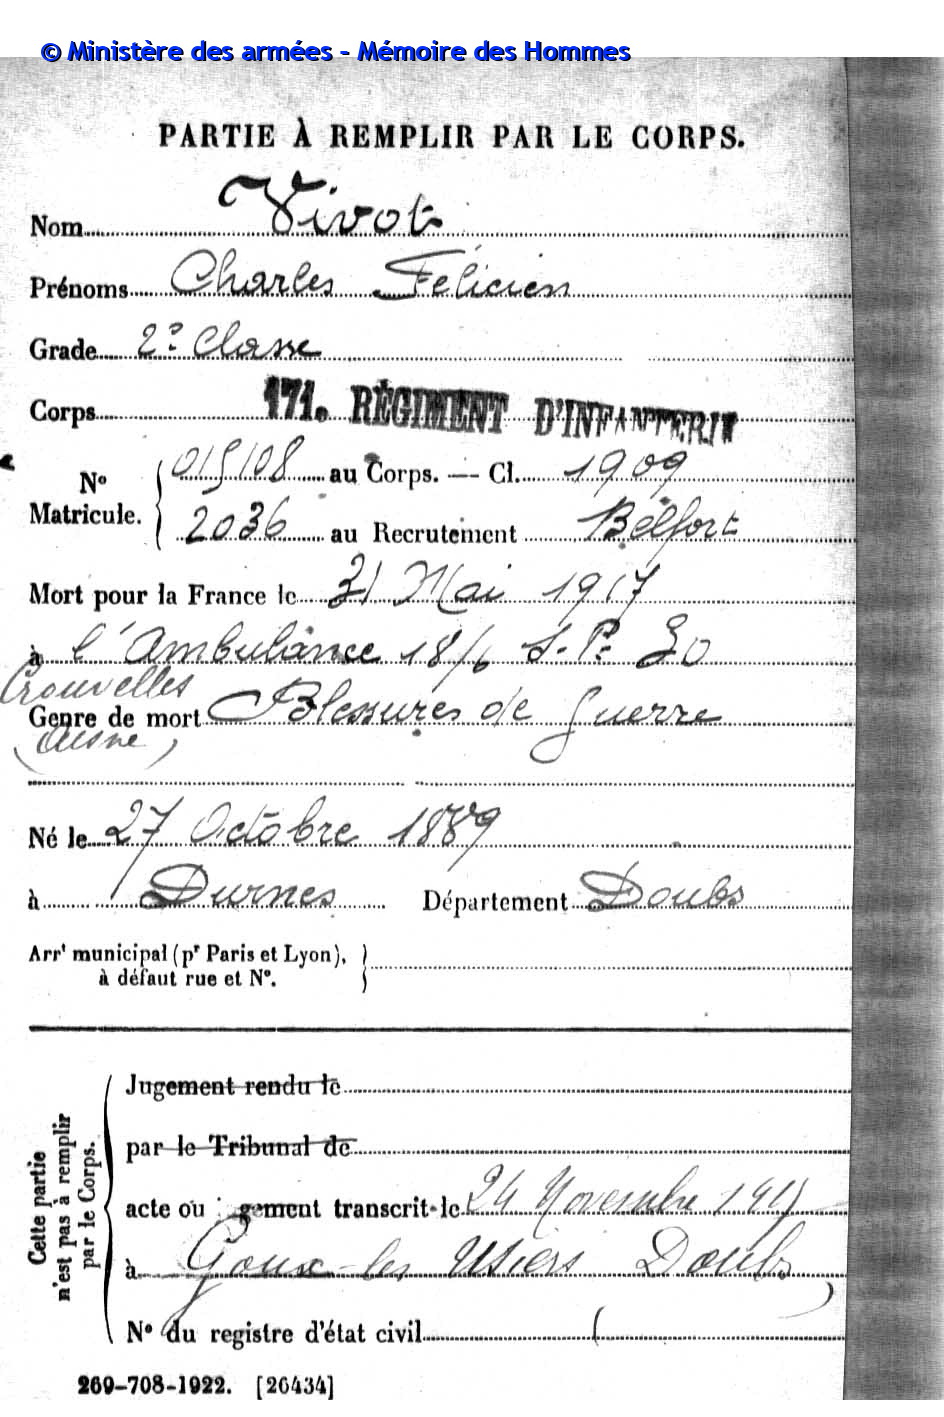 © Ministère des armées - Mémoire des Hommes
PARTIE À REMPLIR PAR LE CORPS.
Nom Vivot
Prénoms Charles Félicien
Grade 2e Classe
Corps 171e RÉGIMENT D'INFANTERIE
N° Matricule. 015108 au Corps. — Cl. 1909
2036 au Recrutement Belfort
Mort pour la France le 31 Mai 1917
à l'Ambulance 18/6 S.P. 30
Crouvelles
Genre de mort Blessures de Guerre
(Aisne)
Né le 27 Octobre 1889
à Durnes Département Doubs
Arrt municipal (pr Paris et Lyon),
à défaut rue et N°.
Cette partie
n'est pas à remplir
par le Corps.
Jugement rendu le
par le Tribunal de
acte ou jugement transcrit le 24 Novembre 1917
à Goux-les Usiers Doubs
N° du registre d'état civil
269-708-1922. [26434]